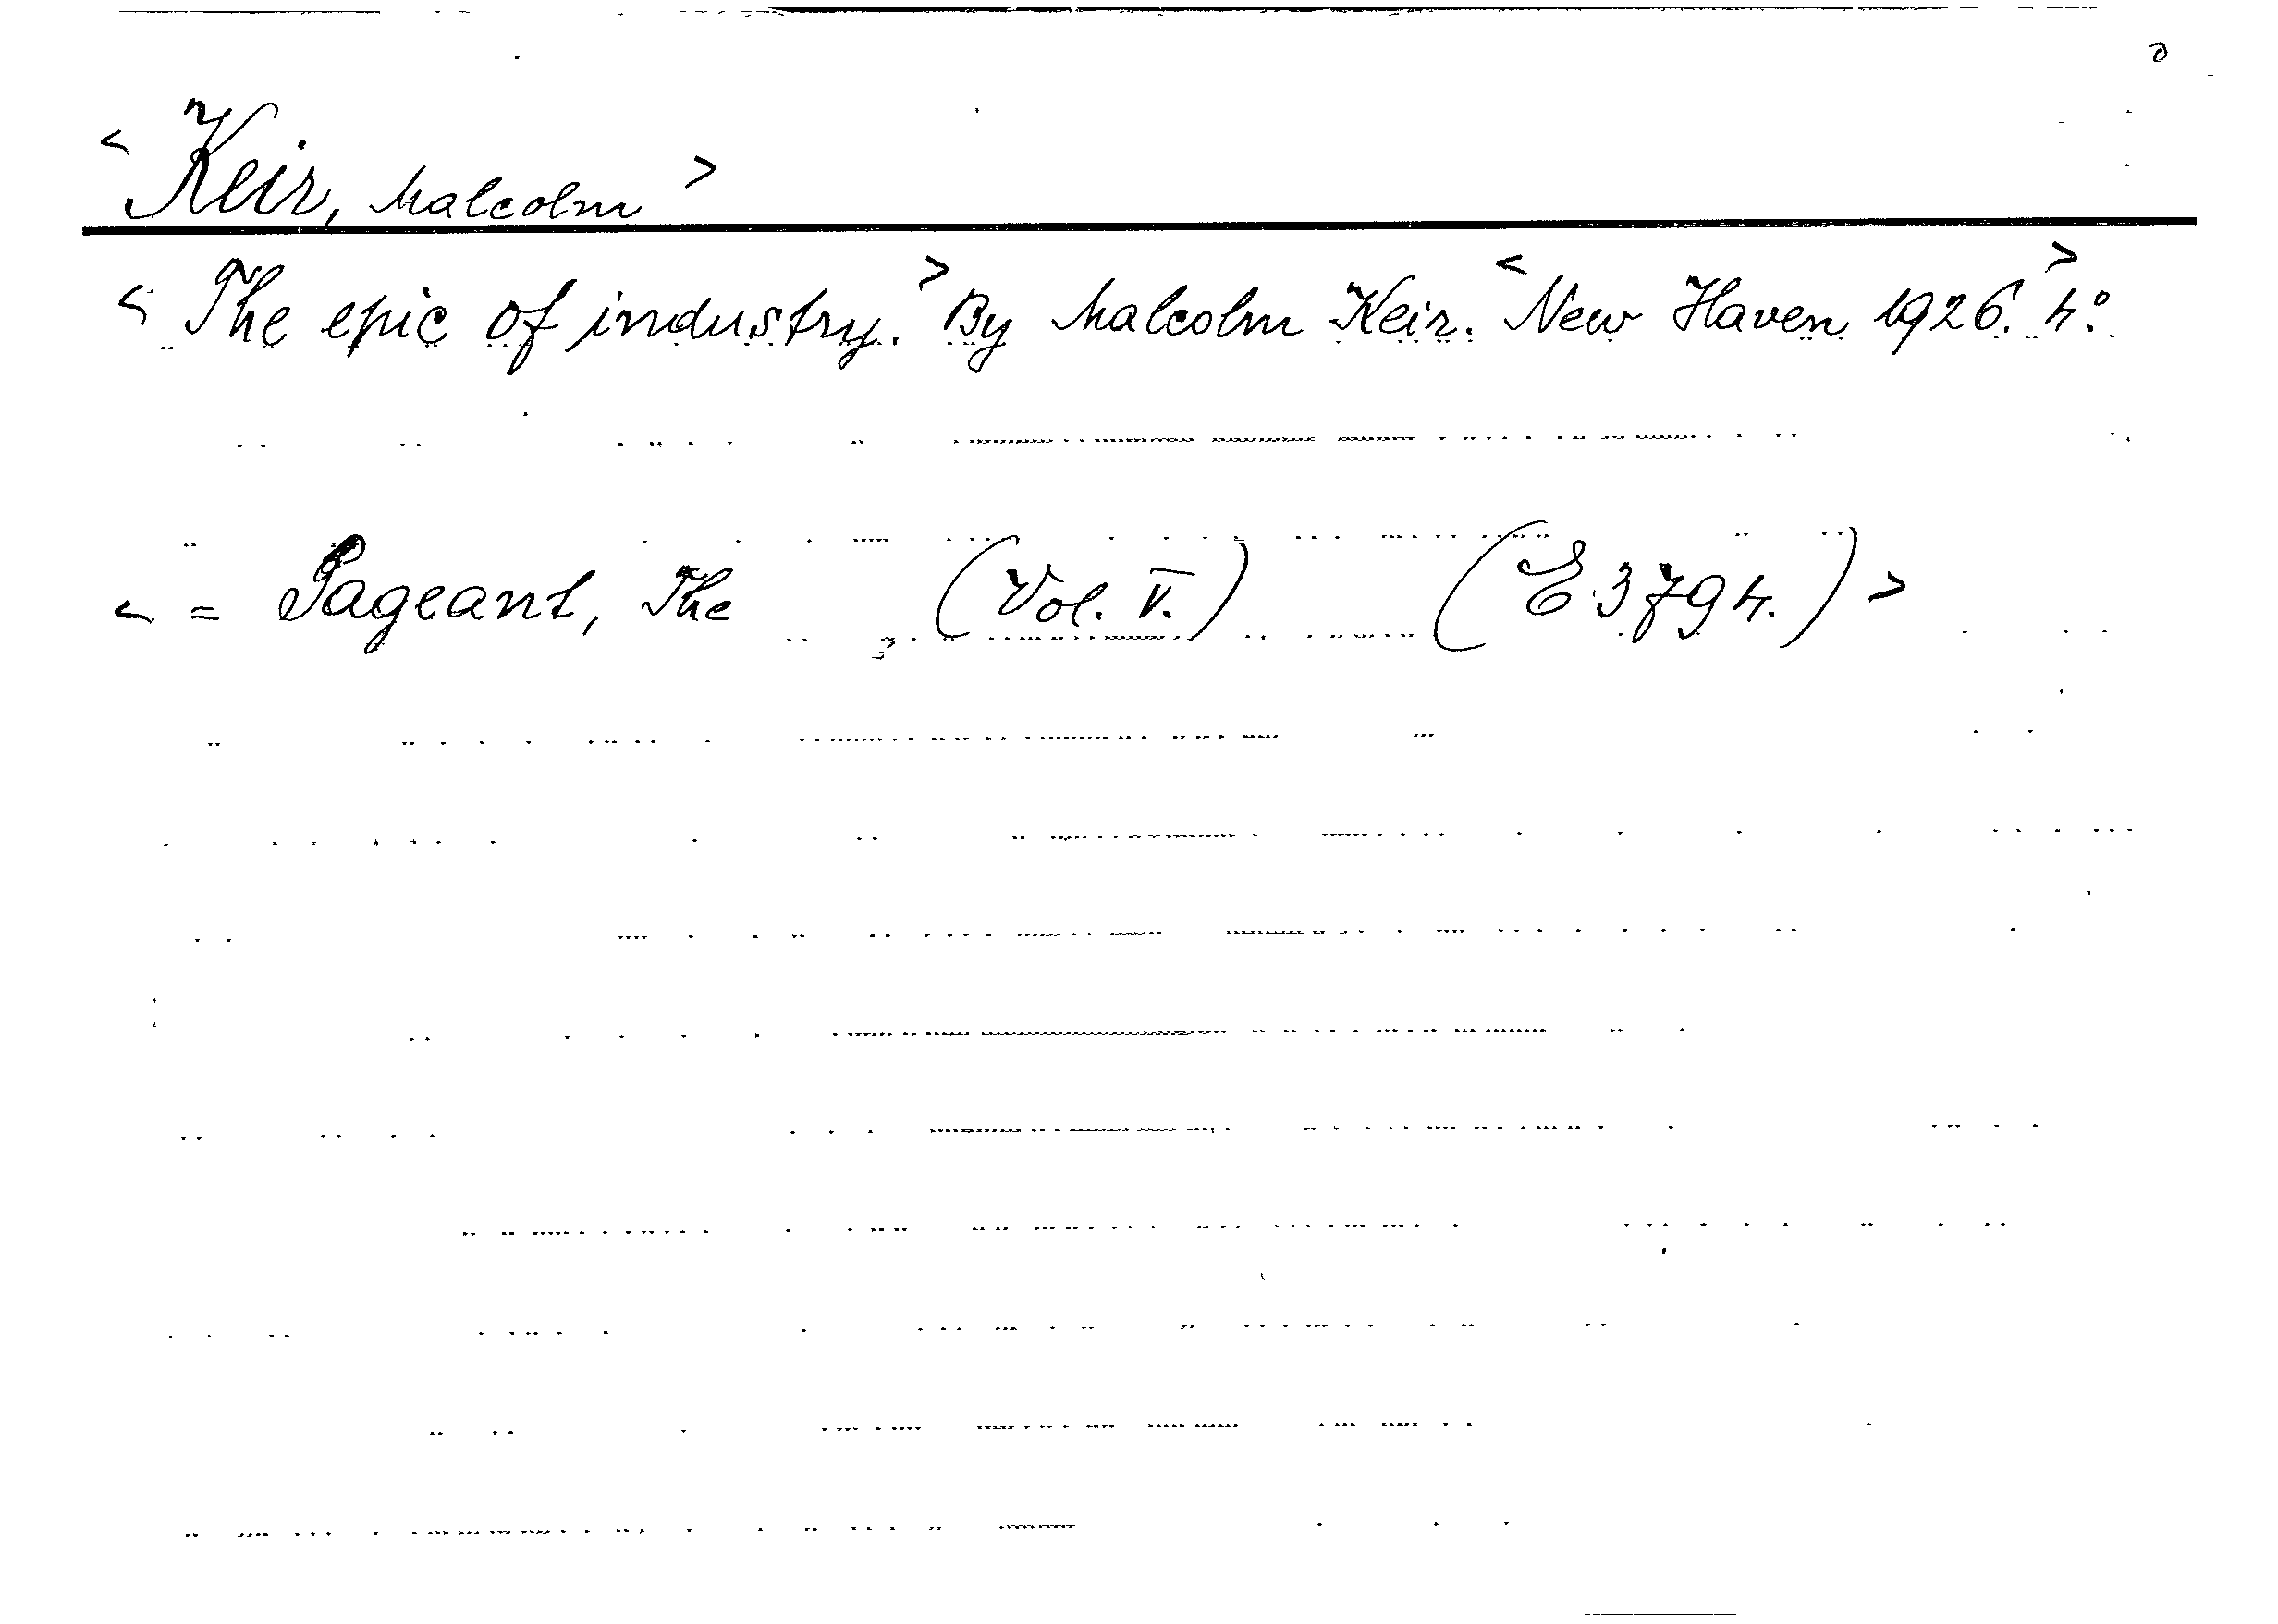 < Keir, Malcolm >
< The epic of industry. > By Malcolm Keir. < New Haven 1926. > 4°.
< = Pageant, The (Vol. V.) (E 3794.) >